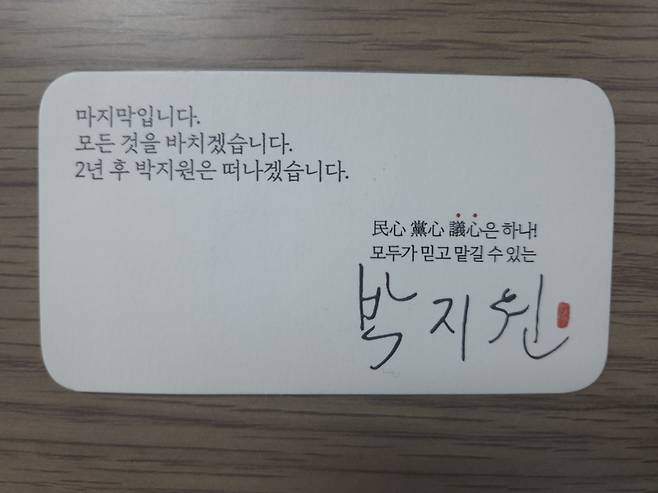 마지막입니다.
모든 것을 바치겠습니다.
2년 후 박지원은 떠나겠습니다.
民心 黨心 議心은 하나!
모두가 믿고 맡길 수 있는
박지원